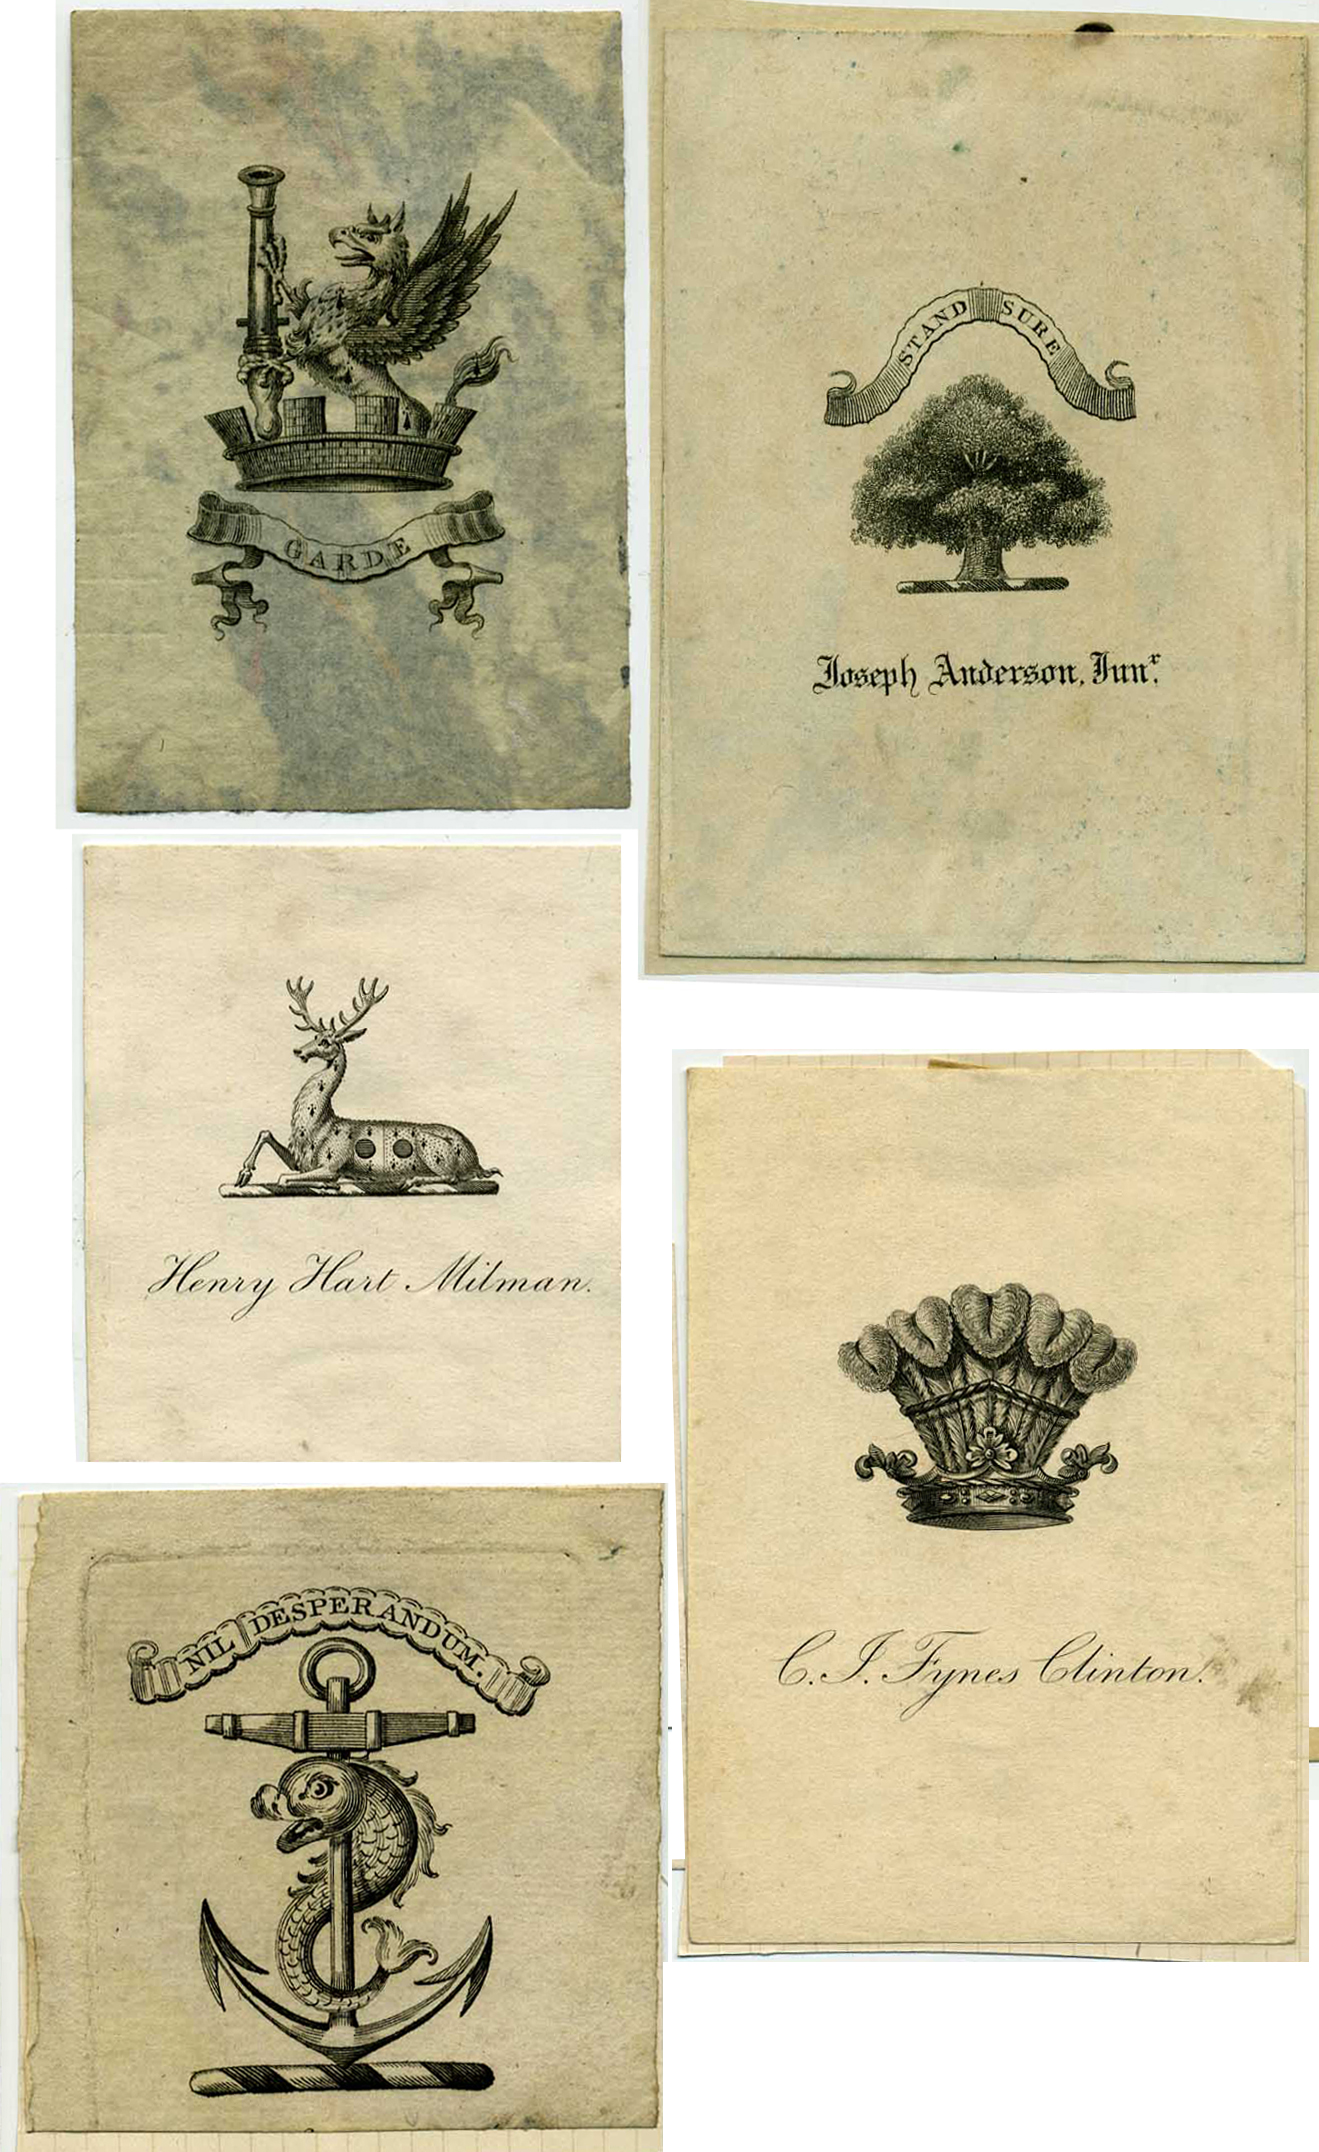 GARDE
STAND SURE
Joseph Anderson, Junr.
Henry Hart Milman.
C. I. Fynes Clinton.
NIL DESPERANDUM.